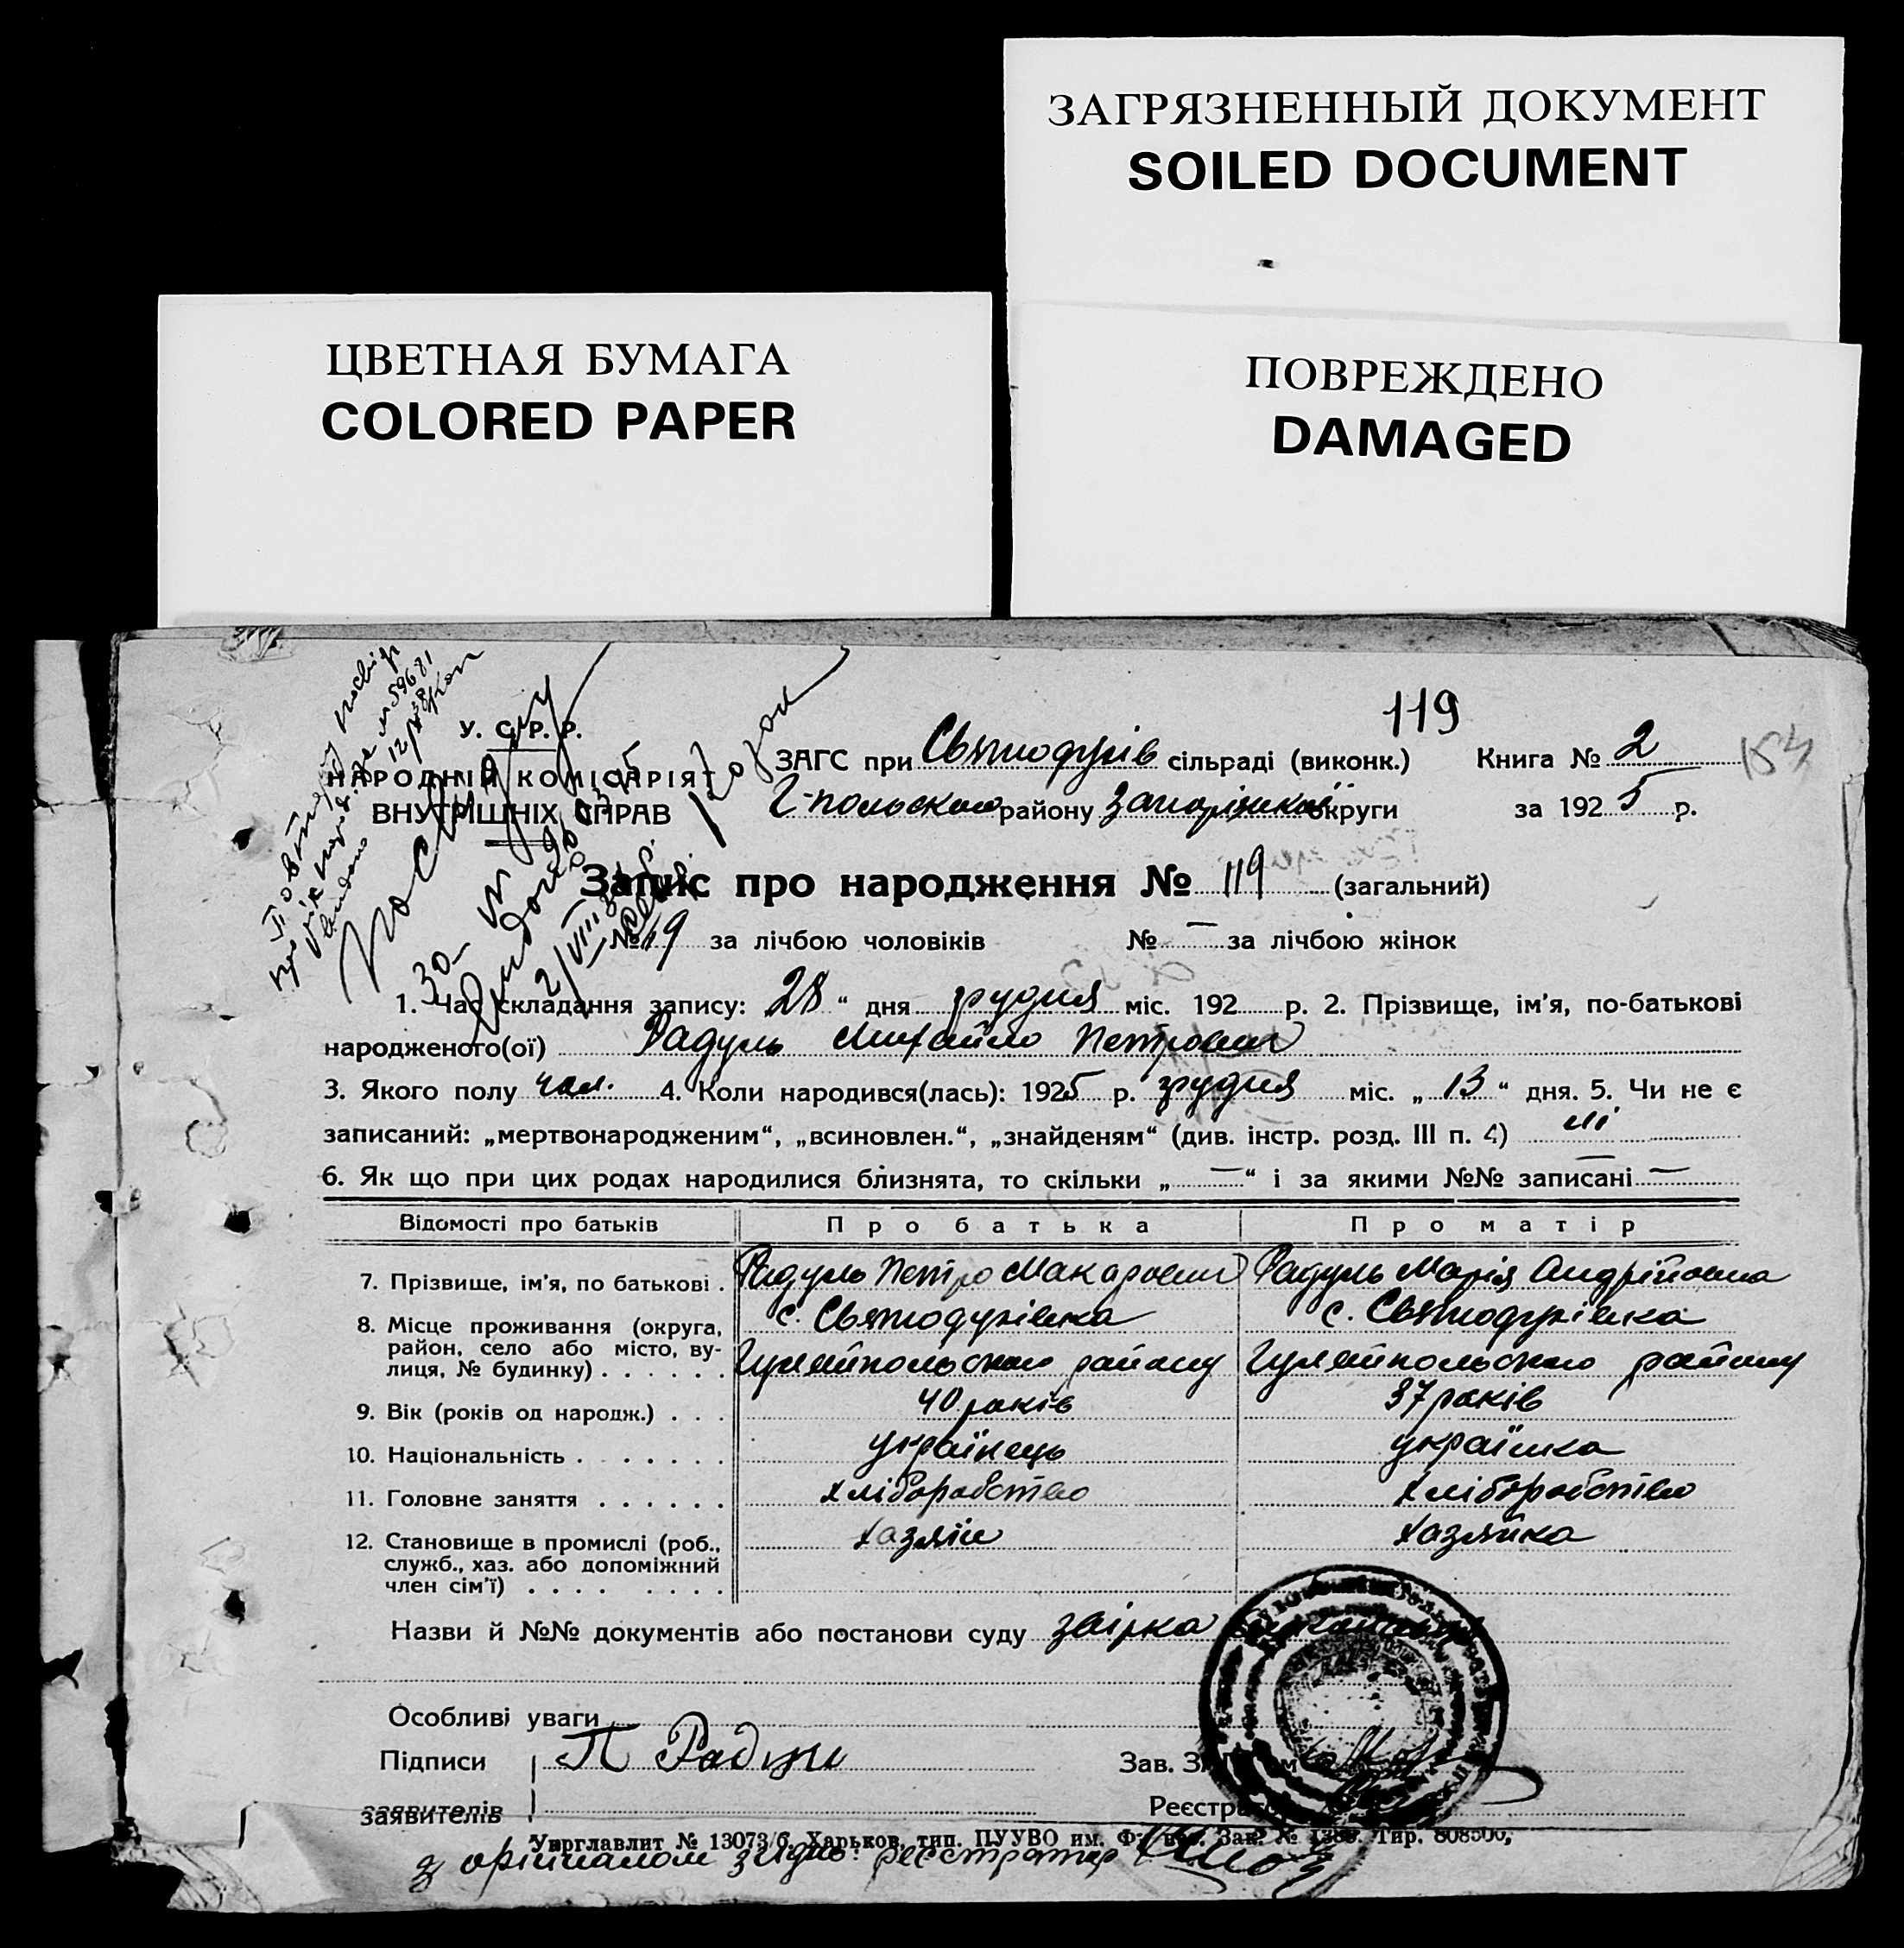 ЗАГРЯЗНЕННЫЙ ДОКУМЕНТ
SOILED DOCUMENT
ЦВЕТНАЯ БУМАГА
COLORED PAPER
ПОВРЕЖДЕНО
DAMAGED
119
У. С. Р. Р.
НАРОДНІЙ КОМІСАРІЯТ
ВНУТРІШНІХ СПРАВ
ЗАГС при Святодухів сільраді (виконк.) Книга № 2
Г-польського району Запоріжської округи за 1925 р.
154
Запис про народження № 119 (загальний)
№ 49 за лічбою чоловіків № — за лічбою жінок
1. Час складання запису: 28 " дня грудня міс. 192 р. 2. Прізвище, ім'я, по-батькові
народженого(ої) Радуль Михайло Петрович
3. Якого полу чол. 4. Коли народився(лась): 1925 р. грудня міс. „ 13 " дня. 5. Чи не є
записаний: „мертвонародженим“, „всиновлен.“, „знайденям“ (див. інстр. розд. III п. 4) ні
6. Як що при цих родах народилися близнята, то скільки „ — “ і за якими №№ записані —
Відомості про батьків Про батька Про матір
7. Прізвище, ім'я, по батькові . Радуль Петро Макарович Радуль Марія Андрійовна
8. Місце проживання (округа, район, село або місто, ву-лиця, № будинку) с. Святодухівка с. Святодухівка
Гуляйпольського району Гуляйпольського району
9. Вік (років од народж.) . . . 40 років 37 років
10. Національність . українець українка
11. Головне заняття хліборобство хліборобство
12. Становище в промислі (роб., служб., хаз. або допоміжний член сім'ї) хазяїн хазяйка
Назви й №№ документів або постанови суду звірка
Особливі уваги
Підписи П Радуль Зав. ЗАГС'ом
заявителів Реєстратор
Укрглавлит № 13073/б. Харьков, тип. ПУУВО им. Зак. № Тир. 808500,
З оріїналом згідно: реєстратор